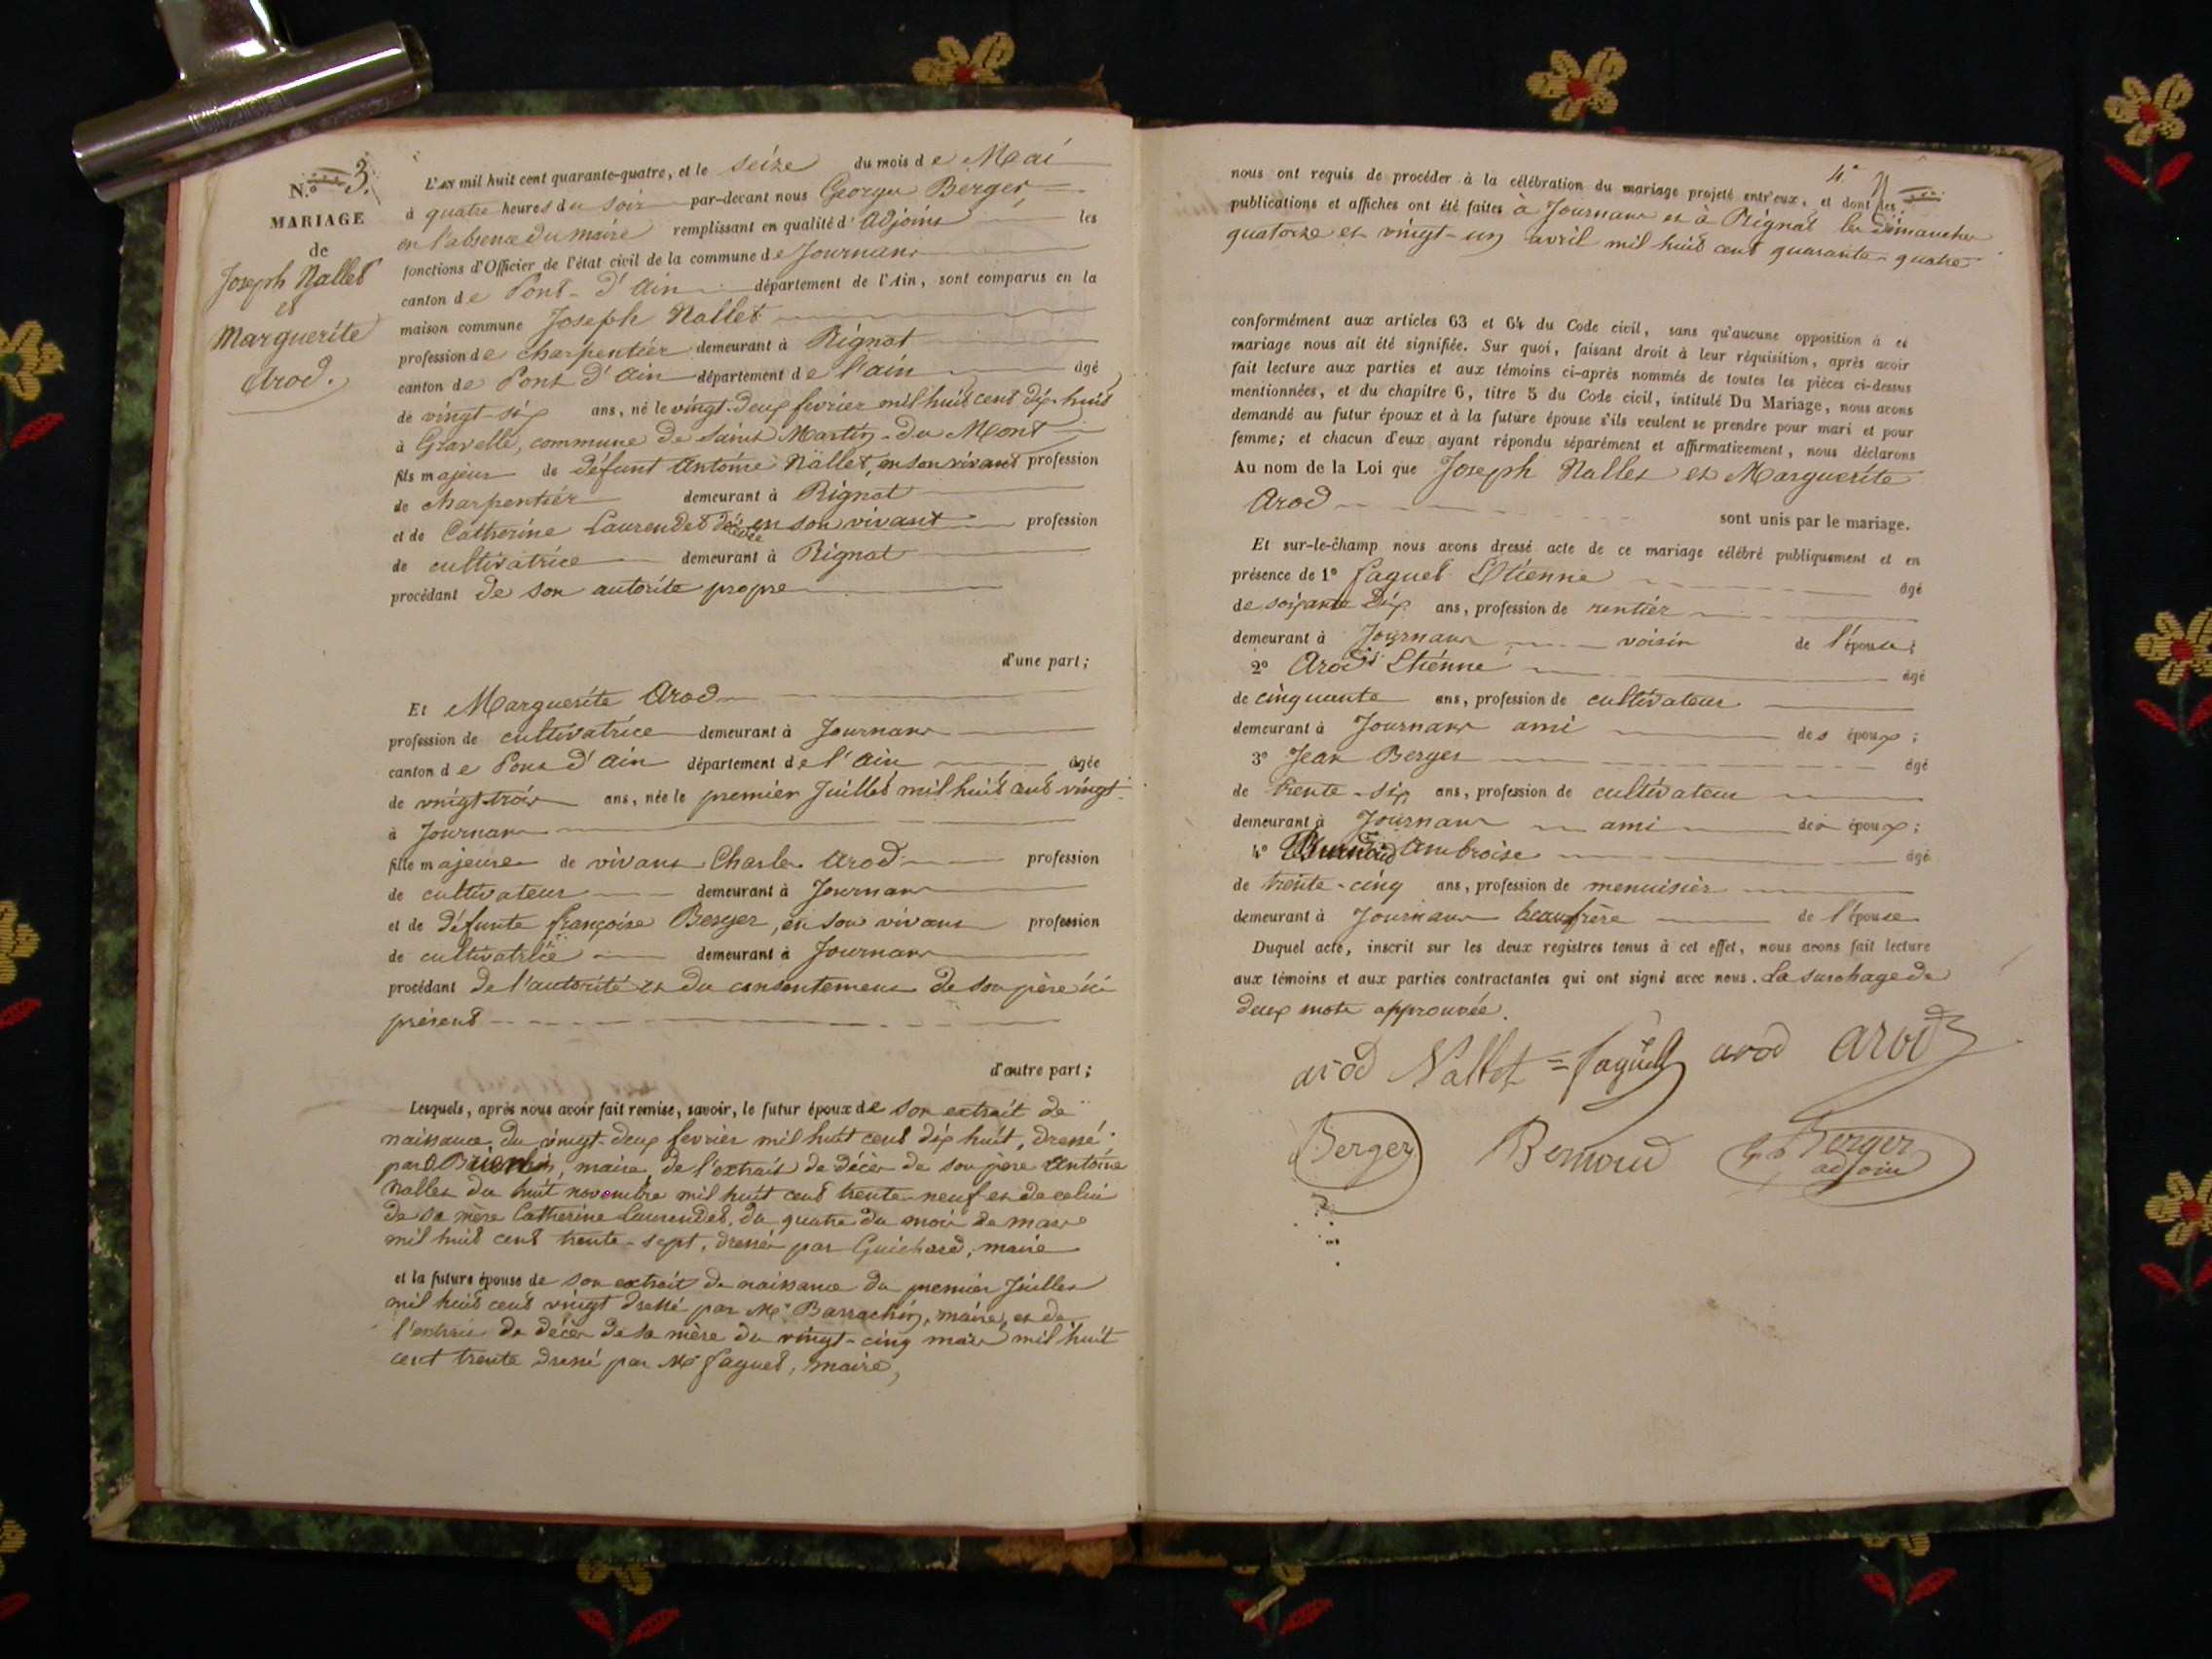 N.º 3.
MARIAGE
de
Joseph Nallet
et
Marguerite
Arod.
L'an mil huit cent quarante-quatre, et le seize du mois de Mai
à quatre heures du soir par-devant nous George Berger
en l'absence du maire remplissant en qualité d'adjoint les
fonctions d'Officier de l'état civil de la commune de Journans
canton de Pont-d'Ain département de l'Ain, sont comparus en la
maison commune Joseph Nallet
profession de charpentier demeurant à Rignat
canton de Pont d'Ain département de l'ain âgé
de vingt-six ans, né le vingt-deux fevrier mil huit cent dix-huit
à Gravelle, commune de Saint Martin-du Mont
fils majeur de défunt Antoine Nallet, en son vivant profession
de charpentier demeurant à Rignat
et de Catherine Laurendet décédée en son vivant profession
de cultivatrice demeurant à Rignat
procédant de son autorité propre
d'une part;
Et Marguerite Arod
profession de cultivatrice demeurant à Journans
canton de Pont d'Ain département de l'Ain âgée
de vingt-trois ans, née le premier Juillet mil huit cent vingt
à Journans
fille majeure de vivant Charles Arod profession
de cultivateur demeurant à Journans
et de défunte françoise Berger, en son vivant profession
de cultivatrice demeurant à Journans
procédant de l'autorité et du consentement de son père ici
présent
d'autre part;
Lesquels, après nous avoir fait remise, savoir, le futur époux de son extrait de
naissance du vingt-deux fevrier mil huit cent dix huit, dressé
par maire, de l'extrait de décès de son père Antoine
Nallet du huit novembre mil huit cent trente-neuf et de celui
de sa mère Catherine Laurendet, du quatre du mois de mars
mil huit cent trente-sept, dressés par Guichard, maire
et la future épouse de son extrait de naissance du premier Juillet
mil huit cent vingt dressé par Mr Barrachin, maire, et de
l'extrait de décès de sa mère du vingt-cinq mars mil huit
cent trente dressé par Mr faguet, maire,
4.e
nous ont requis de procéder à la célébration du mariage projeté entr'eux, et dont les
publications et affiches ont été faites à Journans et à Rignat les dimanches
quatorze et vingt-un avril mil huit cent quarante-quatre
conformément aux articles 63 et 64 du Code civil, sans qu'aucune opposition à ce
mariage nous ait été signifiée. Sur quoi, faisant droit à leur réquisition, après avoir
fait lecture aux parties et aux témoins ci-après nommés de toutes les pièces ci-dessus
mentionnées, et du chapitre 6, titre 5 du Code civil, intitulé Du Mariage, nous avons
demandé au futur époux et à la future épouse s'ils veulent se prendre pour mari et pour
femme; et chacun d'eux ayant répondu séparément et affirmativement, nous déclarons
Au nom de la Loi que Joseph Nallet et Marguerite
Arod sont unis par le mariage.
Et sur-le-champ nous avons dressé acte de ce mariage célébré publiquement et en
présence de 1º faguet Etienne âgé
de soixante dix ans, profession de rentier
demeurant à Journans voisin de l'épouse;
2º Arod Etienne âgé
de cinquante ans, profession de cultivateur
demeurant à Journans ami des époux;
3º Jean Berger âgé
de trente-six ans, profession de cultivateur
demeurant à Journans ami des époux;
4º Ambroise âgé
de trente-cinq ans, profession de menuisier
demeurant à Journans beaufrère de l'épouse
Duquel acte, inscrit sur les deux registres tenus à cet effet, nous avons fait lecture
aux témoins et aux parties contractantes qui ont signé avec nous. La surchage de
deux mots approuvée.
arod Nallet faguet arod arod
Berger Bernoud G. Berger
adjoint